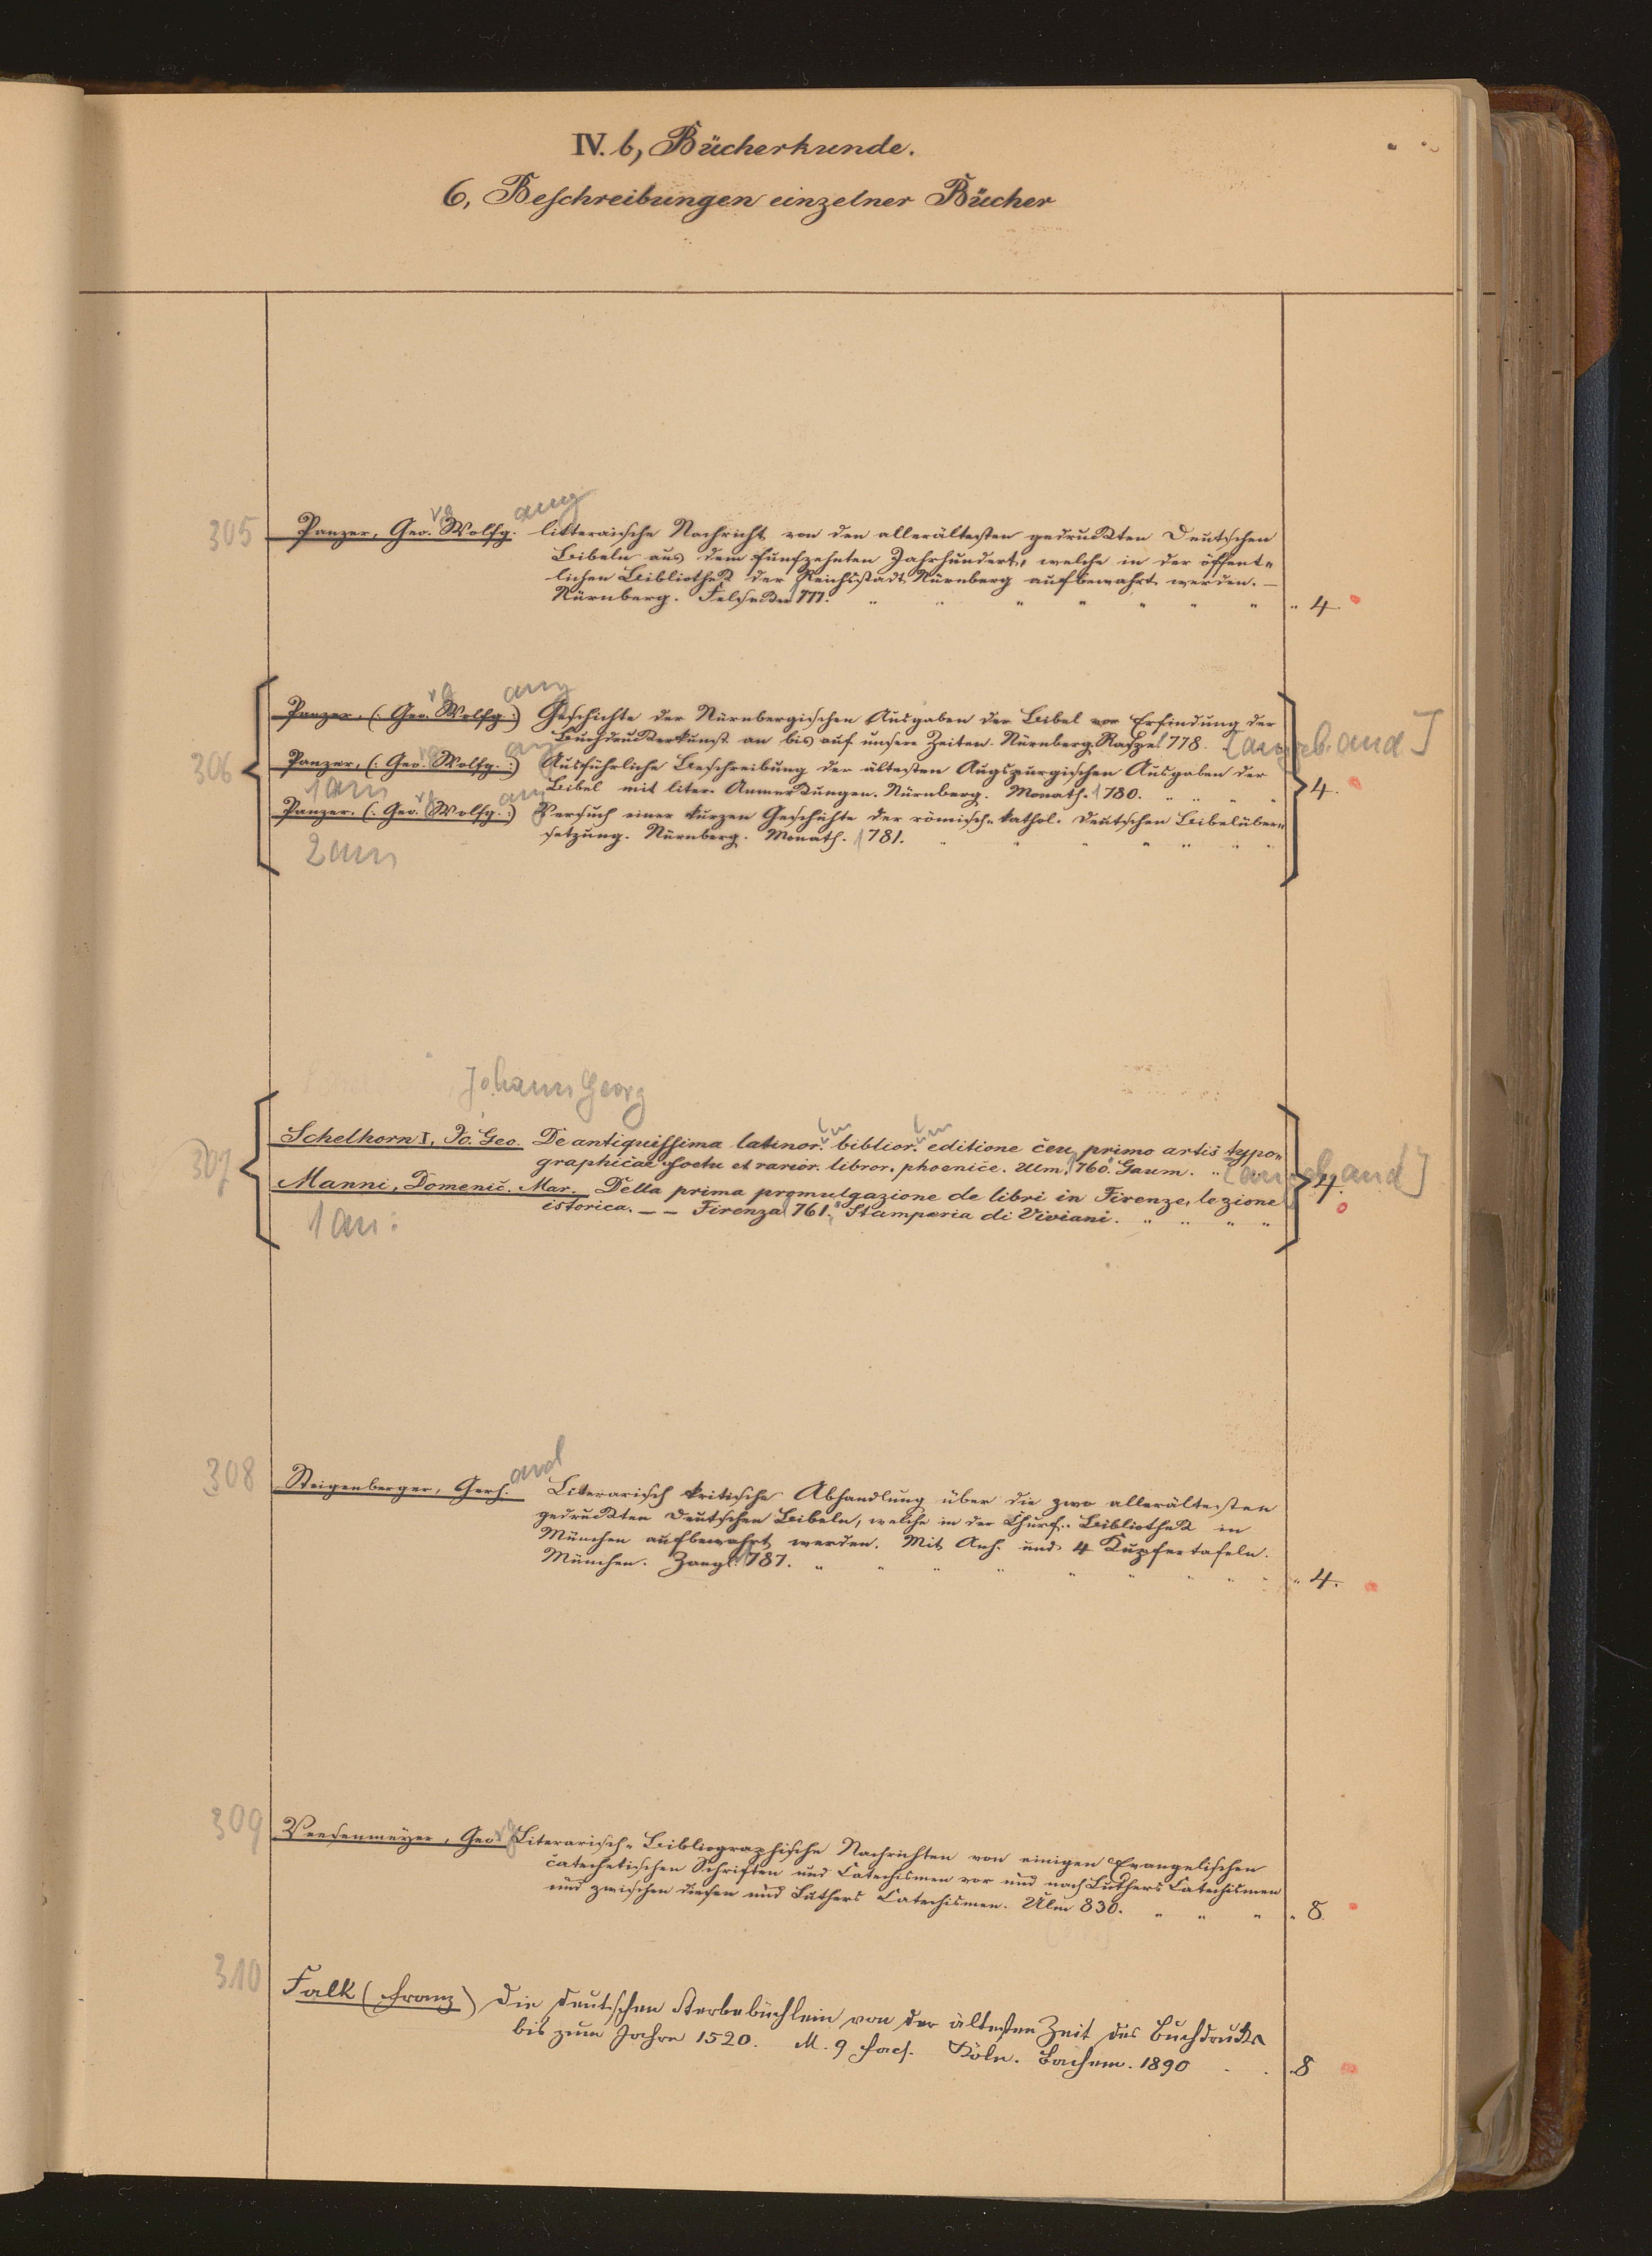 IV. b, Bücherkunde.
6, Beschreibungen einzelner Bücher
305 Panzer, Geo. Wolfg. litterarische Nachricht von den allerältesten gedruckten Deutschen
rg ang
Bibeln aus dem funfzehnten Jahrhundert, welche in der öffent-
lichen Bibliothek der Reichsstadt Nürnberg aufbewahrt werden. —
Nürnberg. Felsecker 1777. " " " " " " " " 4.
306 Panzer, (: Geo. Wolfg. :) Geschichte der Nürnbergischen Ausgaben der Bibel von Erfindung der
rg ang
Buchdruckerkunst an bis auf unsere Zeiten. Nürnberg. Raspe. 1778. and]
Panzer, (: Geo. Wolfg. :) Ausführliche Beschreibung der ältesten Augspurgischen Ausgaben der
rg ang
1 an Bibel mit liter. Anmerkungen. Nürnberg. Monath. 1780. " " " " 4.
Panzer, (: Geo. Wolfg. :) Versuch einer kurzen Geschichte der römisch-kathol. Deutschen Bibelüber-
rg ang
2 an setzung. Nürnberg. Monath. 1781. " " " " " "
Johann Georg
307 Schelhorn I, Jo. Geo. De antiquissima latinor. biblior. editione ceu primo artis typo-
um um
graphicae foetu et rarior. libror. phoenice. Ulm. 1760. Gaum. " and]
Manni, Domenic. Mar. Della prima promulgazione de libri in Firenze, lezione 4.
1 an: istorica. — — Firenza 1761. Stamperia di Viviani. " " " "
308 Steigenberger, Gerh. Literarisch kritische Abhandlung über die zwo allerältesten
ard
gedruckten Deutschen Bibeln, welche in der Churf. Bibliothek in
München aufbewahrt werden. Mit Anh. und 4 Kupfertafeln.
München. Zangl. 1787. " " " " " " " " " 4.
309 Veesenmeyer, Georg Literarisch-Bibliographische Nachrichten von einigen Evangelischen
catechetischen Schriften und Catechismen vor und nach Luthers Catechismen
und zwischen diesen und Luthers Catechismen. Ulm 830. " " " " 8.
310 Falk (Franz) Die deutschen Sterbebüchlein von der ältesten Zeit des Buchdrucks
bis zum Jahre 1520. M. 9 Facs. Köln. Bachem. 1890 . . . 8